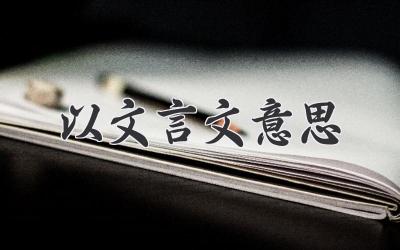 以文言文意思